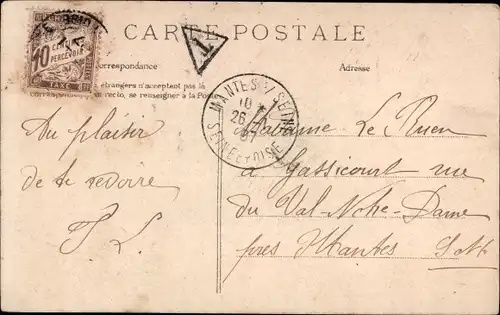 CARTE POSTALE
10 CENTIMES A PERCEVOIR
TAXE
T
Correspondance
Adresse
étrangers n'acceptent pas la
correspondance au recto, se renseigner à la Poste
MANTES S/ SEINE
10
26
07
SEINE-ET-OISE
Au plaisir
de te revoire
Madame Le
à Gassicourt rue
du Val Notre-Dame
près Mantes